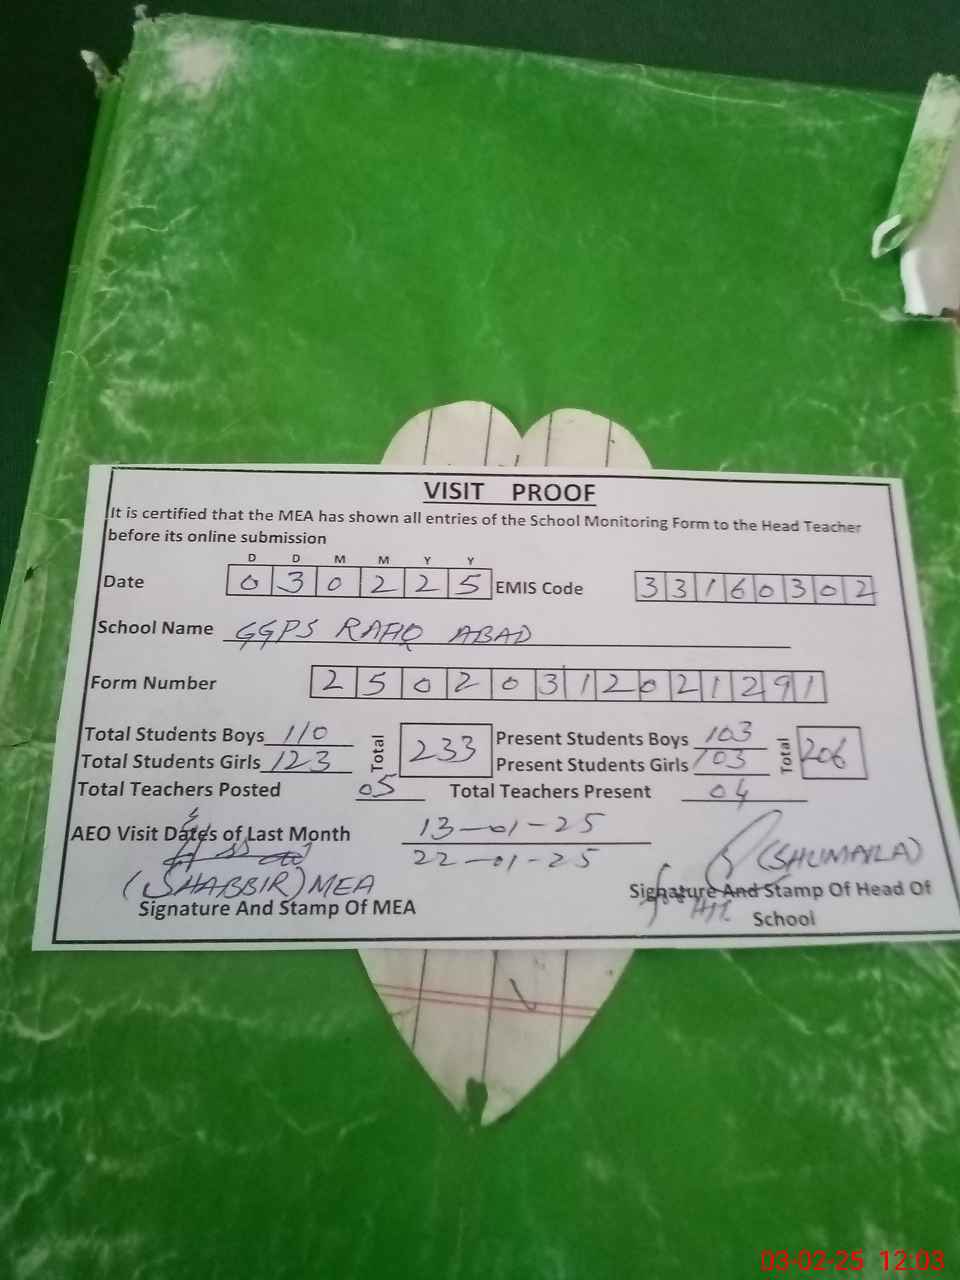 VISIT PROOF
It is certified that the MEA has shown all entries of the School Monitoring Form to the Head Teacher
before its online submission
D D M M Y Y
Date 0 3 0 2 2 5 EMIS Code 3 3 1 6 0 3 0 2
School Name GGPS RAFIQ ABAD
Form Number 2 5 0 2 0 3 1 2 0 2 1 2 9 1
Total Students Boys 110 Total 233 Present Students Boys 103 Total 206
Total Students Girls 123 Present Students Girls 103
Total Teachers Posted 05 Total Teachers Present 04
AEO Visit Dates of Last Month 13-01-25
22-01-25
(SHABBIR) MEA (SHUMAILA)
Signature And Stamp Of MEA Signature And Stamp Of Head Of
School
03-02-25 12:03